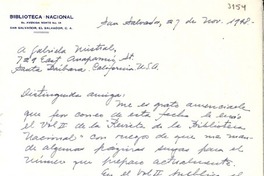 3154
BIBLIOTECA NACIONAL
8a. AVENIDA NORTE No. 16
SAN SALVADOR, EL SALVADOR, C. A.
San Salvador, a 7 de Nov. 1948.
A Gabriela Mistral,
729 East Anapamu St.
Santa Bárbara, California U.S.A.
Distinguida amiga:
Me es grato anunciarle
que por correo de esta fecha le envío
el Vol II de la Revista de la Biblioteca
Nacional = con ruego de que me mande
algunas páginas suyas para el
número que preparo actualmente.
En el Vol II publico el